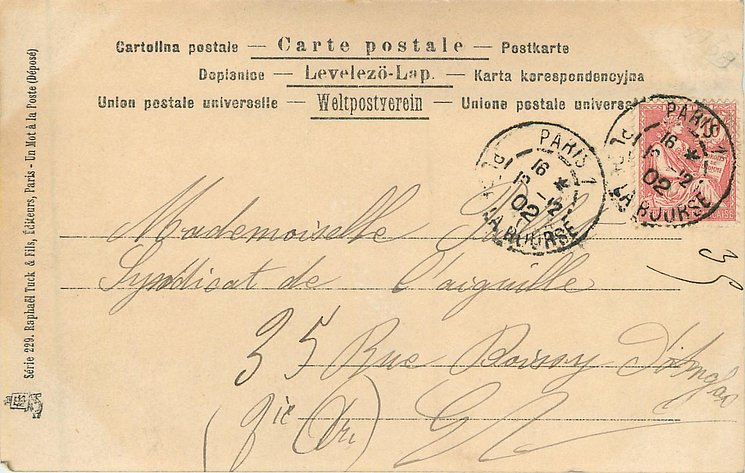 Cartolina postale — Carte postale — Postkarte
Dopisnice — Levelezö-Lap. — Karta korespondencyjna
Union postale universelle — Weltpostverein — Unione postale universa
PARIS 1
16
12
02
LA BOURSE
PARIS 1
16
12
02
LA BOURSE
39
Mademoiselle
Syndicat de l'aiguille
35 Rue Boissy D'Anglas
(
Série 229. Raphaël Tuck & Fils, Éditeurs, Paris - Un Mot à la Poste (Déposé)